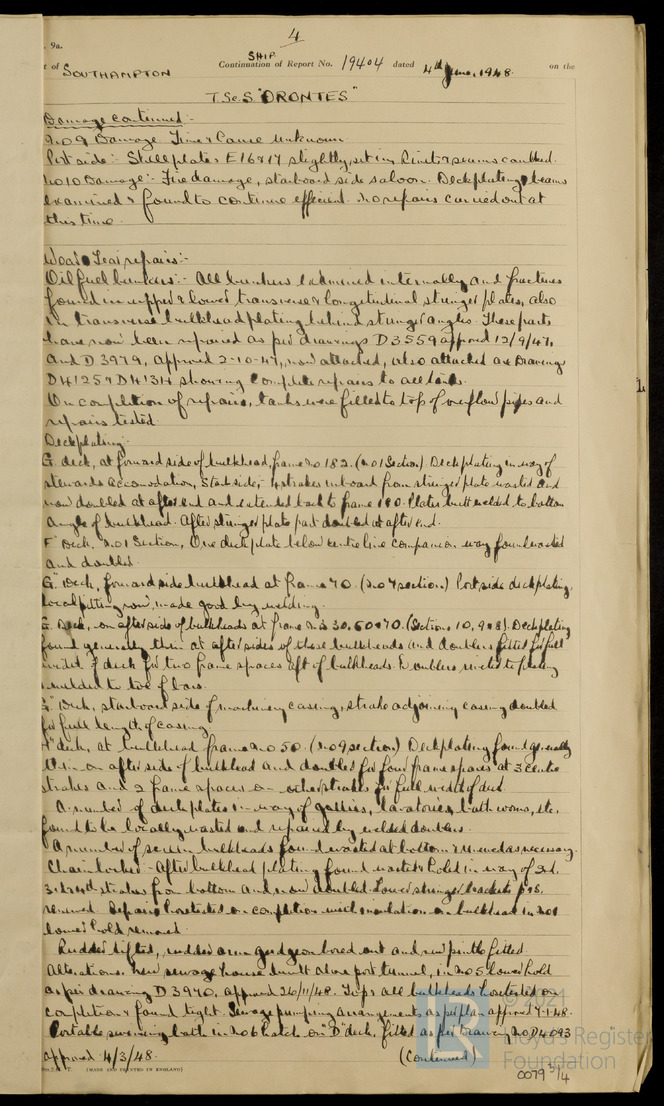 4
9a.
SHIP
of SOUTHAMPTON Continuation of Report No. 19404 dated 4th June, 1948. on the
T.Sc.S "ORONTES"
Damage continued:-
No 9 Damage Time & Cause unknown
Port side:- Shell plates E16 & 17 slightly set in. Rivets & seams caulked.
No 10 Damage:- Fire damage, starboard side saloon. Deck plating & beams
examined & found to continue efficient. No repairs carried out at
this time.
Wear & Tear repairs:-
Oil fuel bunkers:- All bunkers examined internally and fractures
found in upper & lower transverse & longitudinal stringer plates, also
in transverse bulkhead plating behind stringer angles. These parts
have now been repaired as per drawings D3559 approved 12/9/47,
and D3979, approved 2-10-47, now attached, also attached are Drawings
D4125 & D4314 showing complete repairs to all tanks.
On completion of repairs, tanks were filled to top of overflow pipes and
repairs tested.
Deck plating:-
G. deck, at forward side of bulkhead, frame no 182. (No 1 Section) Deck plating in way of
stewards accomodation, Starb side, 4 strakes inboard from stringer plate wasted and
now doubled at after end and extended back to frame 180. Plates butt welded to bottom
angle of bulkhead. After stringer plate part doubled at after end.
F Deck, No 1 Section, One deck plate below centre line companion way found wasted
and doubled.
G" Deck, forward side bulkhead at frame 70. (No 7 section) Port side deck plating,
local pitting now made good by welding.
G. Deck, on after side of bulkheads at frame Nos 30, 60 & 70. (Sections 10, 9 & 8). Deck plating
found generally thin at after sides of these bulkheads and doublers fitted for full
width of deck for two frame spaces aft of bulkheads. Doublers to
welded to toe of bars.
G" Deck, starboard side of machinery casing, strake adjoining casing doubled
for full length of casing.
H" deck, at bulkhead frame no 50. (No 9 section) Deck plating found generally
thin on after side of bulkhead and doubled for four frame spaces at 3 centre
strakes and 2 frame spaces on other strakes for full width of deck.
A number of deck plates in way of galleries, lavatories, bath rooms, etc.
found to be locally wasted and repaired by welded doublers.
A number of screen bulkheads found wasted at bottom & renewed as necessary.
Chain locker:- After bulkhead plating found wasted & holed in way of 2nd,
3rd & 4th strakes from bottom and now doubled. Lower stringer brackets p & s.
renewed. Repairs hose tested on completion with insulation on bulkhead in No 1
lower hold removed.
Rudder lifted, rudder arm gudgeon bored out and new pintle fitted
Alterations. New sewage house built above port tunnel, in No 5 lower hold
as per drawing D3970, approved 26/11/48. Tops & all bulkheads hose tested on
completion & found tight. Sewage pumping arrangements as per plan approved 7-1-48.
Portable swimming bath in No 6 hatch on D" deck, fitted as per drawing No D4093
approved 4/3/48. (Continued)
(MADE AND PRINTED IN ENGLAND)
© 2021
Lloyd's Register
Foundation
0079 3/4